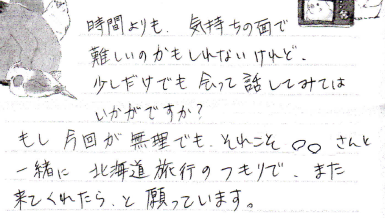 時間よりも、気持ちの面で
難しいのかもしれないけれど、
少しだけでも会って話してみては
いかがですか?
もし今回が無理でも、それこそ○○さんと
一緒に北海道旅行のつもりで、また
来てくれたら、と願っています。